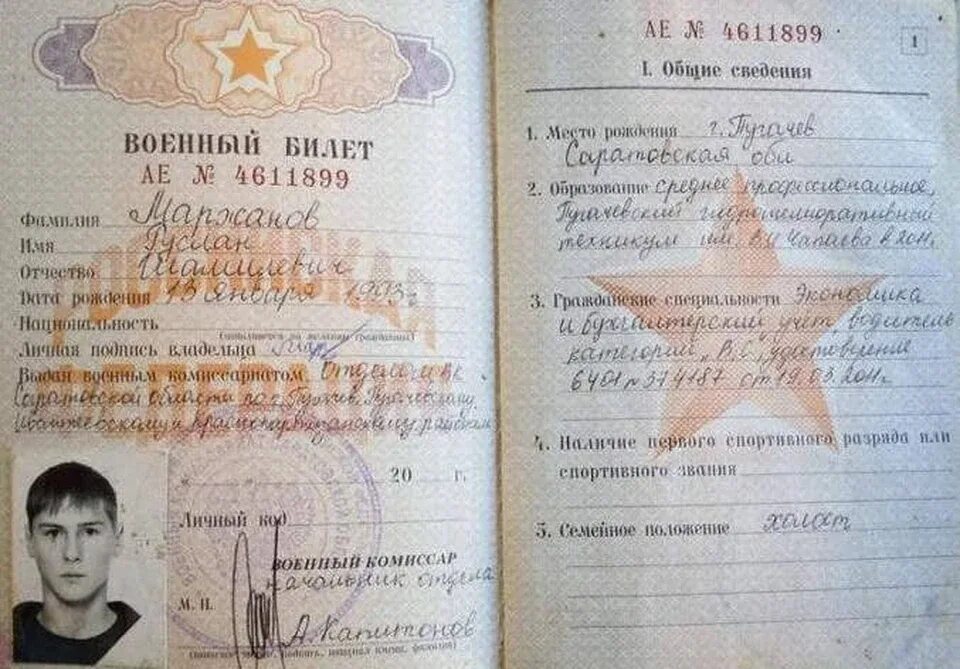 ВОЕННЫЙ БИЛЕТ
АЕ № 4611899
Фамилия Маржанов
Имя Руслан
Отчество Шамилевич
Дата рождения 13 января 1993г
Национальность
(заполняется по желанию гражданина)
Личная подпись владельца
Выдан военным комиссариатом Отделом ВК
Саратовской области по г. Пугачев, Пугачевскому
и Краснопартизанскому районам
20 г.
Личный код
ВОЕННЫЙ КОМИССАР
начальник отдела
М. П.
А. Капитонов
АЕ № 4611899
1
I. Общие сведения
1. Место рождения г. Пугачев
Саратовская обл
2. Образование среднее профессиональное,
Пугачевский гидромелиоративный
техникум им. В.И Чапаева в 2011г
3. Гражданские специальности Экономика
и бухгалтерский учет, водитель
категории „В, С", удостоверение
6401 № 374187 от 19.03.2011г.
4. Наличие первого спортивного разряда или
спортивного звания
5. Семейное положение холост